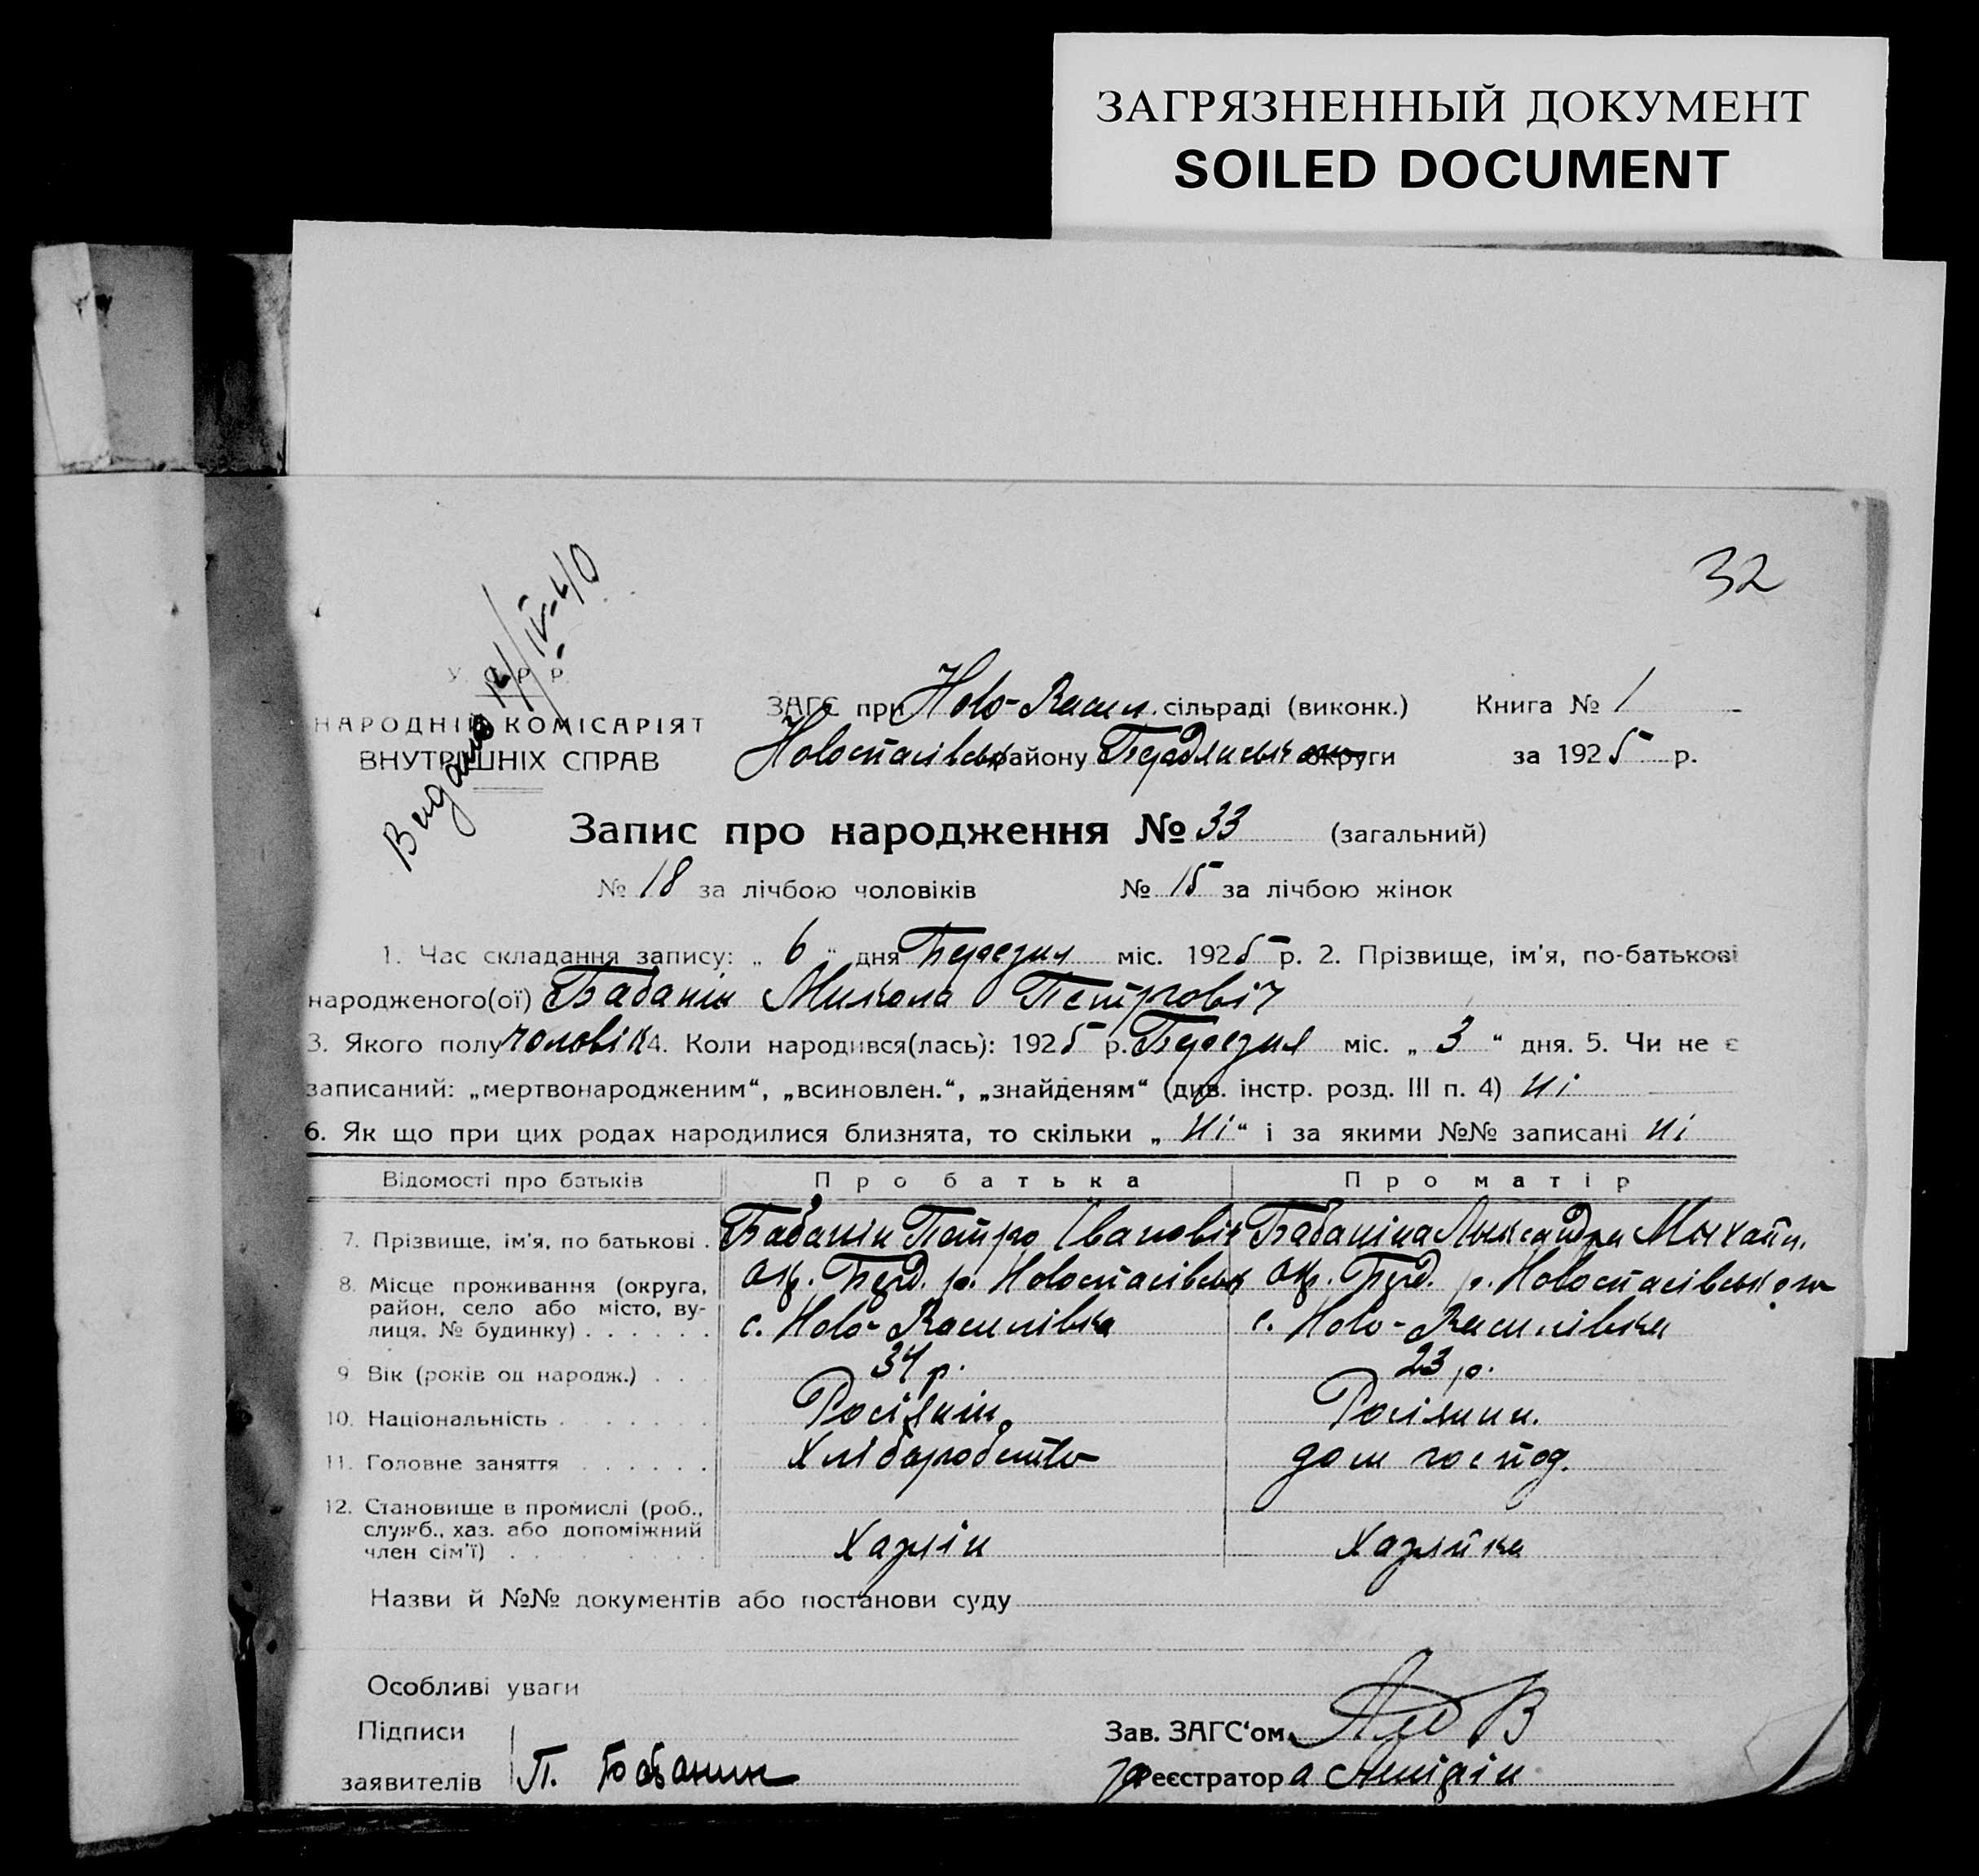 ЗАГРЯЗНЕННЫЙ ДОКУМЕНТ
SOILED DOCUMENT
32
Видано IV-40
У. С. Р. Р.
НАРОДНІЙ КОМІСАРІЯТ
ВНУТРІШНІХ СПРАВ
ЗАГС при Ново-Васил. сільраді (виконк.) Книга № 1
Новоспасівськ району Бердянськ округи за 1925 р.
Запис про народження № 33 (загальний)
№ 18 за лічбою чоловіків № 15 за лічбою жінок
1. Час складання запису: „ 6 “ дня Березня міс. 1925 р. 2. Прізвище, ім'я, по-батькові
народженого(ої) Бабанін Микола Петровіч
3. Якого полу чоловік 4. Коли народився(лась): 1925 р. Березня міс. „ 3 “ дня. 5. Чи не є
записаний: „мертвонародженим“, „всиновлен.“, „знайденям“ (див. інстр. розд. III п. 4) ні
6. Як що при цих родах народилися близнята, то скільки „ ні “ і за якими №№ записані ні
Відомості про батьків Про батька Про матір
7. Прізвище, ім'я, по батькові . Бабанін Петро Івановіч Бабаніна Михайл.
8. Місце проживання (округа, район, село або місто, вулиця, № будинку) . . . . . . Окр. Берд. р. Новоспасівськ Окр. Берд. р. Новоспасівського
с. Ново-Василівка с. Ново-Василівка
9. Вік (років од народж.) . . . 34 р. 23 р.
10. Національність . . . . . . . Росіянин Росіянин.
11. Головне заняття . . . . . . Хліборобство дом господ.
12. Становище в промислі (роб., служб., хаз. або допоміжний член сім'ї) . . . . . . . Хазяін Хазяйка
Назви й №№ документів або постанови суду
Особливі уваги
Підписи
заявителів П. Бабанин
Зав. ЗАГС'ом
Реєстратор